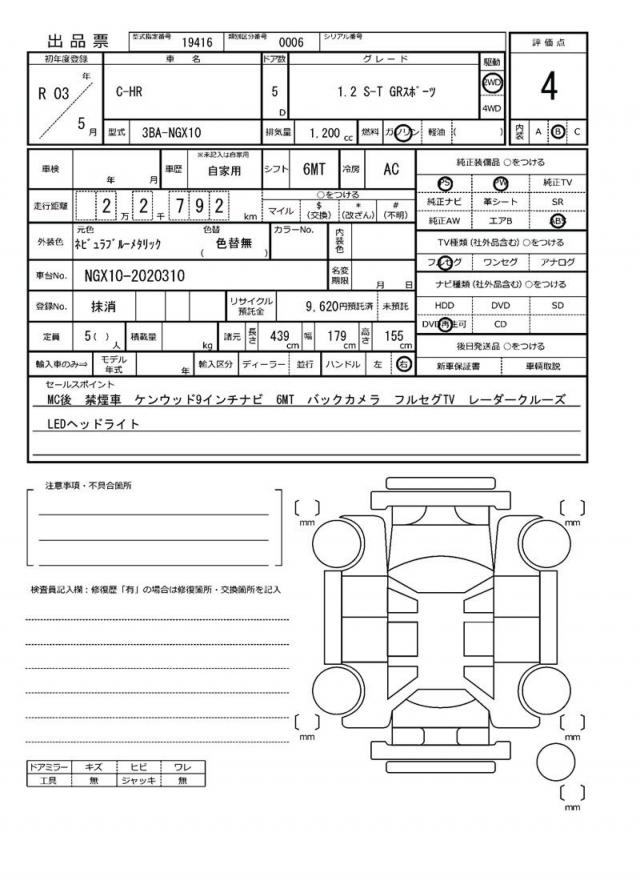 出品票 型式指定番号 19416 類別区分番号 0006 シリアル番号
評価点
4
初年度登録 車 名 ドア数 グレード 駆動
R 03 年 5 月 C-HR 5 D 1.2 S-T GRｽﾎﾟｰﾂ 2WD
4WD
型式 3BA-NGX10 排気量 1.200 cc 燃料 ガソリン 軽油 ( ) 内装 A B C
車検 年 月 車歴 ※未記入は自家用 自家用 シフト 6MT 冷房 AC
走行距離 2 万 2 千 7 9 2 km
○をつける
マイル $ (交換) * (改ざん) # (不明)
外装色 元色 ﾈﾋﾞｭﾗﾌﾞﾙｰﾒﾀﾘｯｸ 色替 ( 色替無 ) カラーNo. 内装色
車台No. NGX10-2020310 名変期限 月 日
登録No. 抹消 リサイクル預託金 9,620円預託済 未預託
定員 5( ) 人 積載量 kg 諸元 長さ 439 cm 幅 179 cm 高さ 155 cm
輸入車のみ⇒ モデル年式 年 輸入区分 ディーラー 並行 ハンドル 左 右
純正装備品 ○をつける
PS PW 純正TV
純正ナビ 革シート SR
純正AW エアB ABS
TV種類 (社外品含む) ○をつける
フルセグ ワンセグ アナログ
ナビ種類 (社外品含む) ○をつける
HDD DVD SD
DVD再生可 CD
後日発送品 ○をつける
新車保証書 車輌取説
セールスポイント
MC後 禁煙車 ケンウッド9インチナビ 6MT バックカメラ フルセグTV レーダークルーズ
LEDヘッドライト
注意事項・不具合箇所
検査員記入欄：修復歴「有」の場合は修復箇所・交換箇所を記入
ドアミラー キズ ヒビ ワレ
工具 無 ジャッキ 無
mm
mm
mm
mm
mm